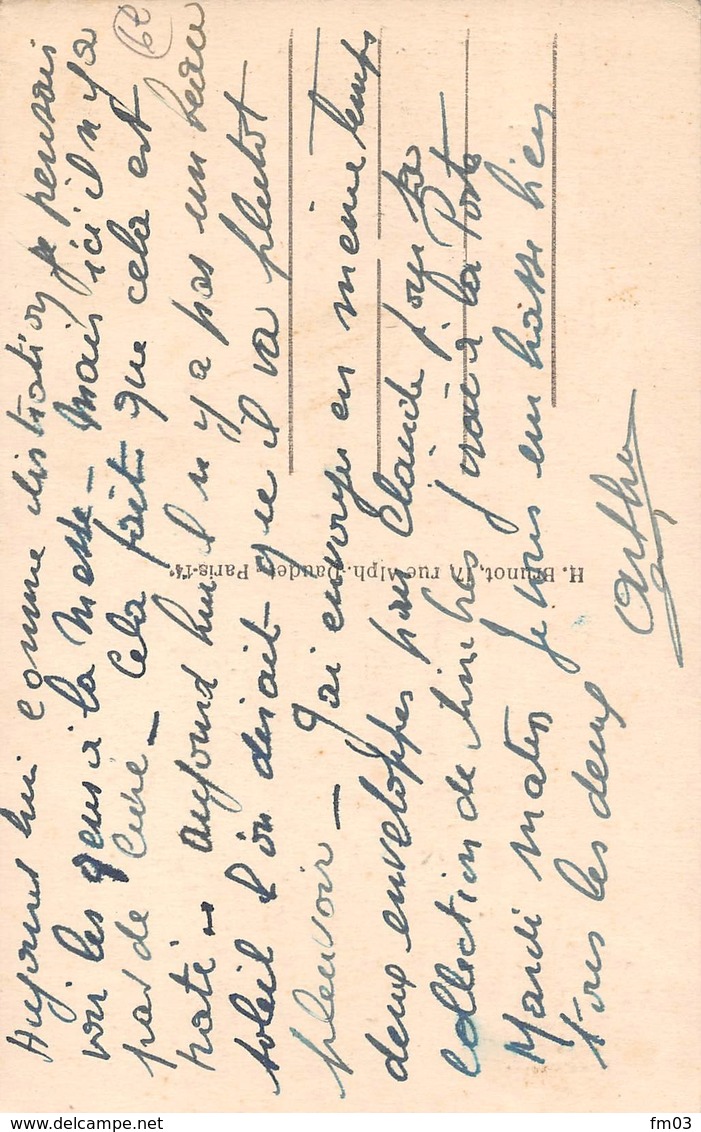 Aujourd hui comme distraction je pensais
voir les gens à la messe - Mais ici il n y a
pas de curé - cela fait que cela est
raté - aujourd hui il n y a pas un beau
soleil l'on dirait que il va plutot
pleuvoir - J'ai envoyé en même temps
deux enveloppes pour Claude pour sa
collection de timbres j'irai à la Poste
Mardi matin Je vous embrasse bien
tous les deux
62
H. Brunot, 17, rue Alph.-Daudet, Paris-14e
fm03